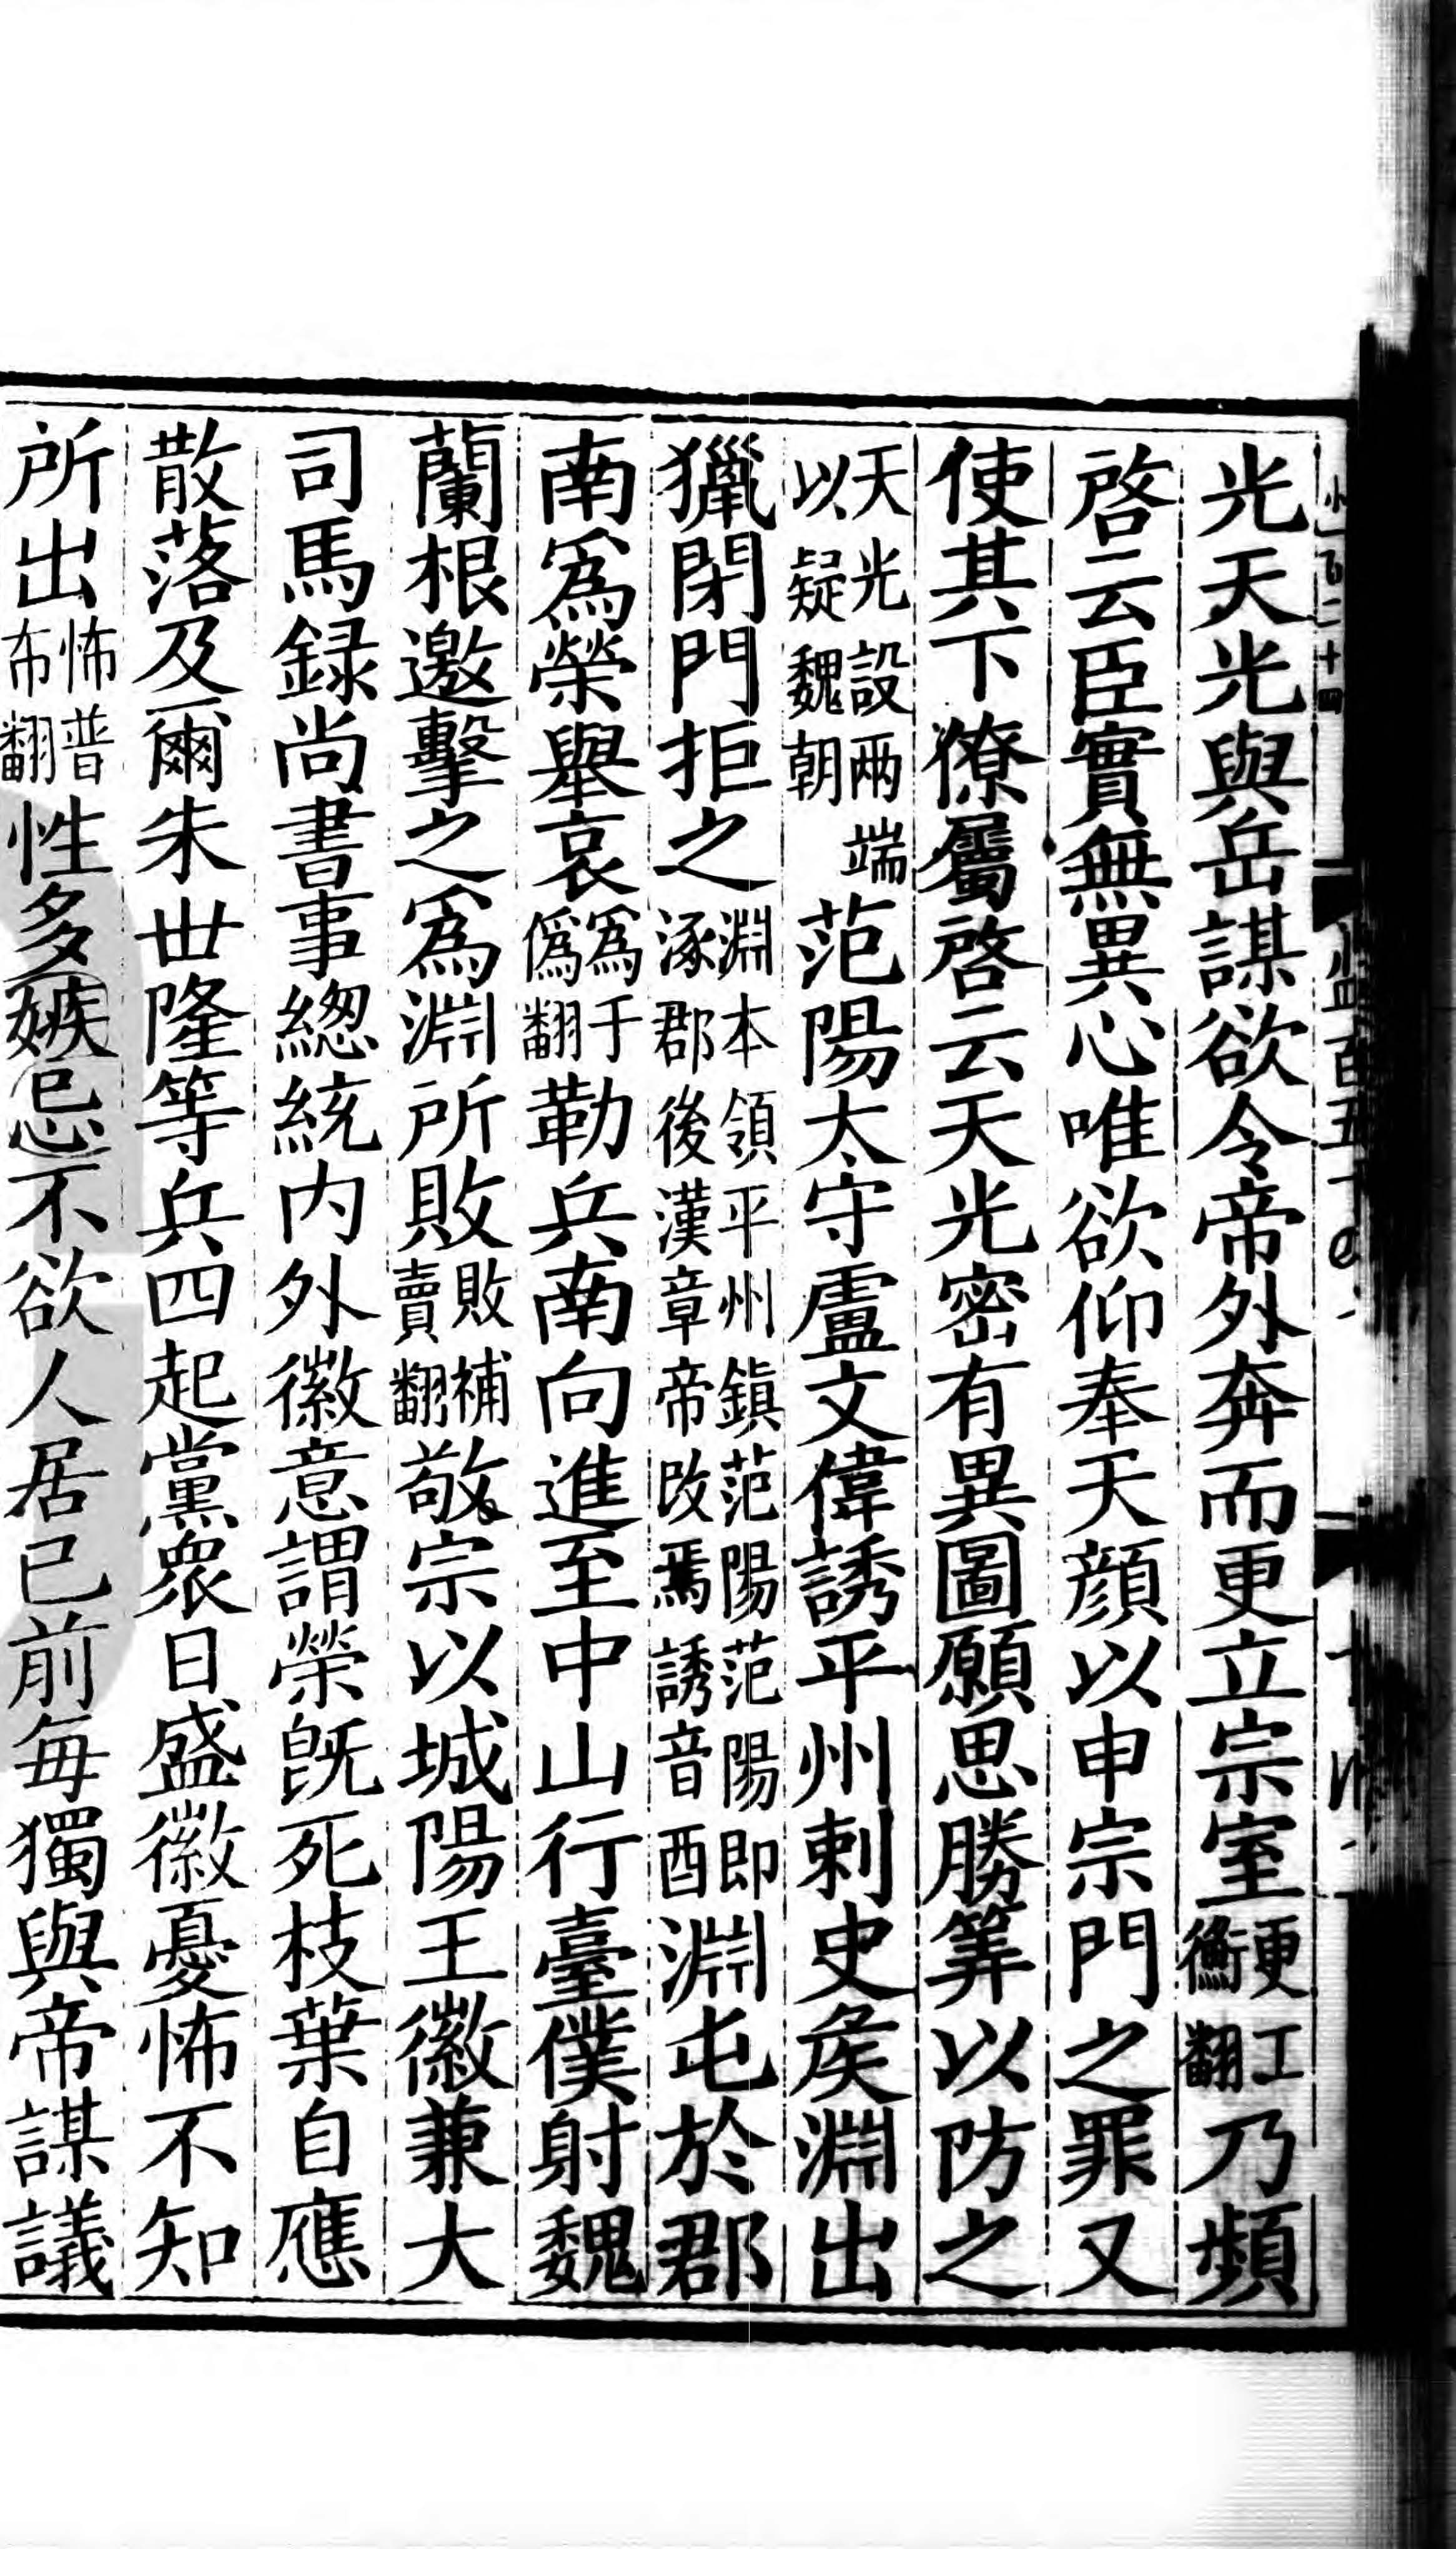 光天光與岳謀欲令帝外奔而更立宗室更工衡翻乃頻
啓云臣實無異心唯欲仰奉天顏以申宗門之罪又
使其下僚屬啓云天光密有異圖願思勝筭以防之
天光設兩端以疑魏朝范陽太守盧文偉誘平州刺史矦淵出
獵閉門拒之淵本領平州鎮范陽范陽即涿郡後漢章帝改焉誘音酉淵屯於郡
南爲榮舉哀爲于僞翻勒兵南向進至中山行臺僕射魏
蘭根邀擊之爲淵所敗敗補賣翻敬宗以城陽王徽兼大
司馬録尚書事緫統内外徽意謂榮旣死枝葉自應
散落及爾朱世隆等兵四起黨衆日盛徽憂怖不知
所出怖普布翻性多嫉忌不欲人居已前每獨與帝謀議